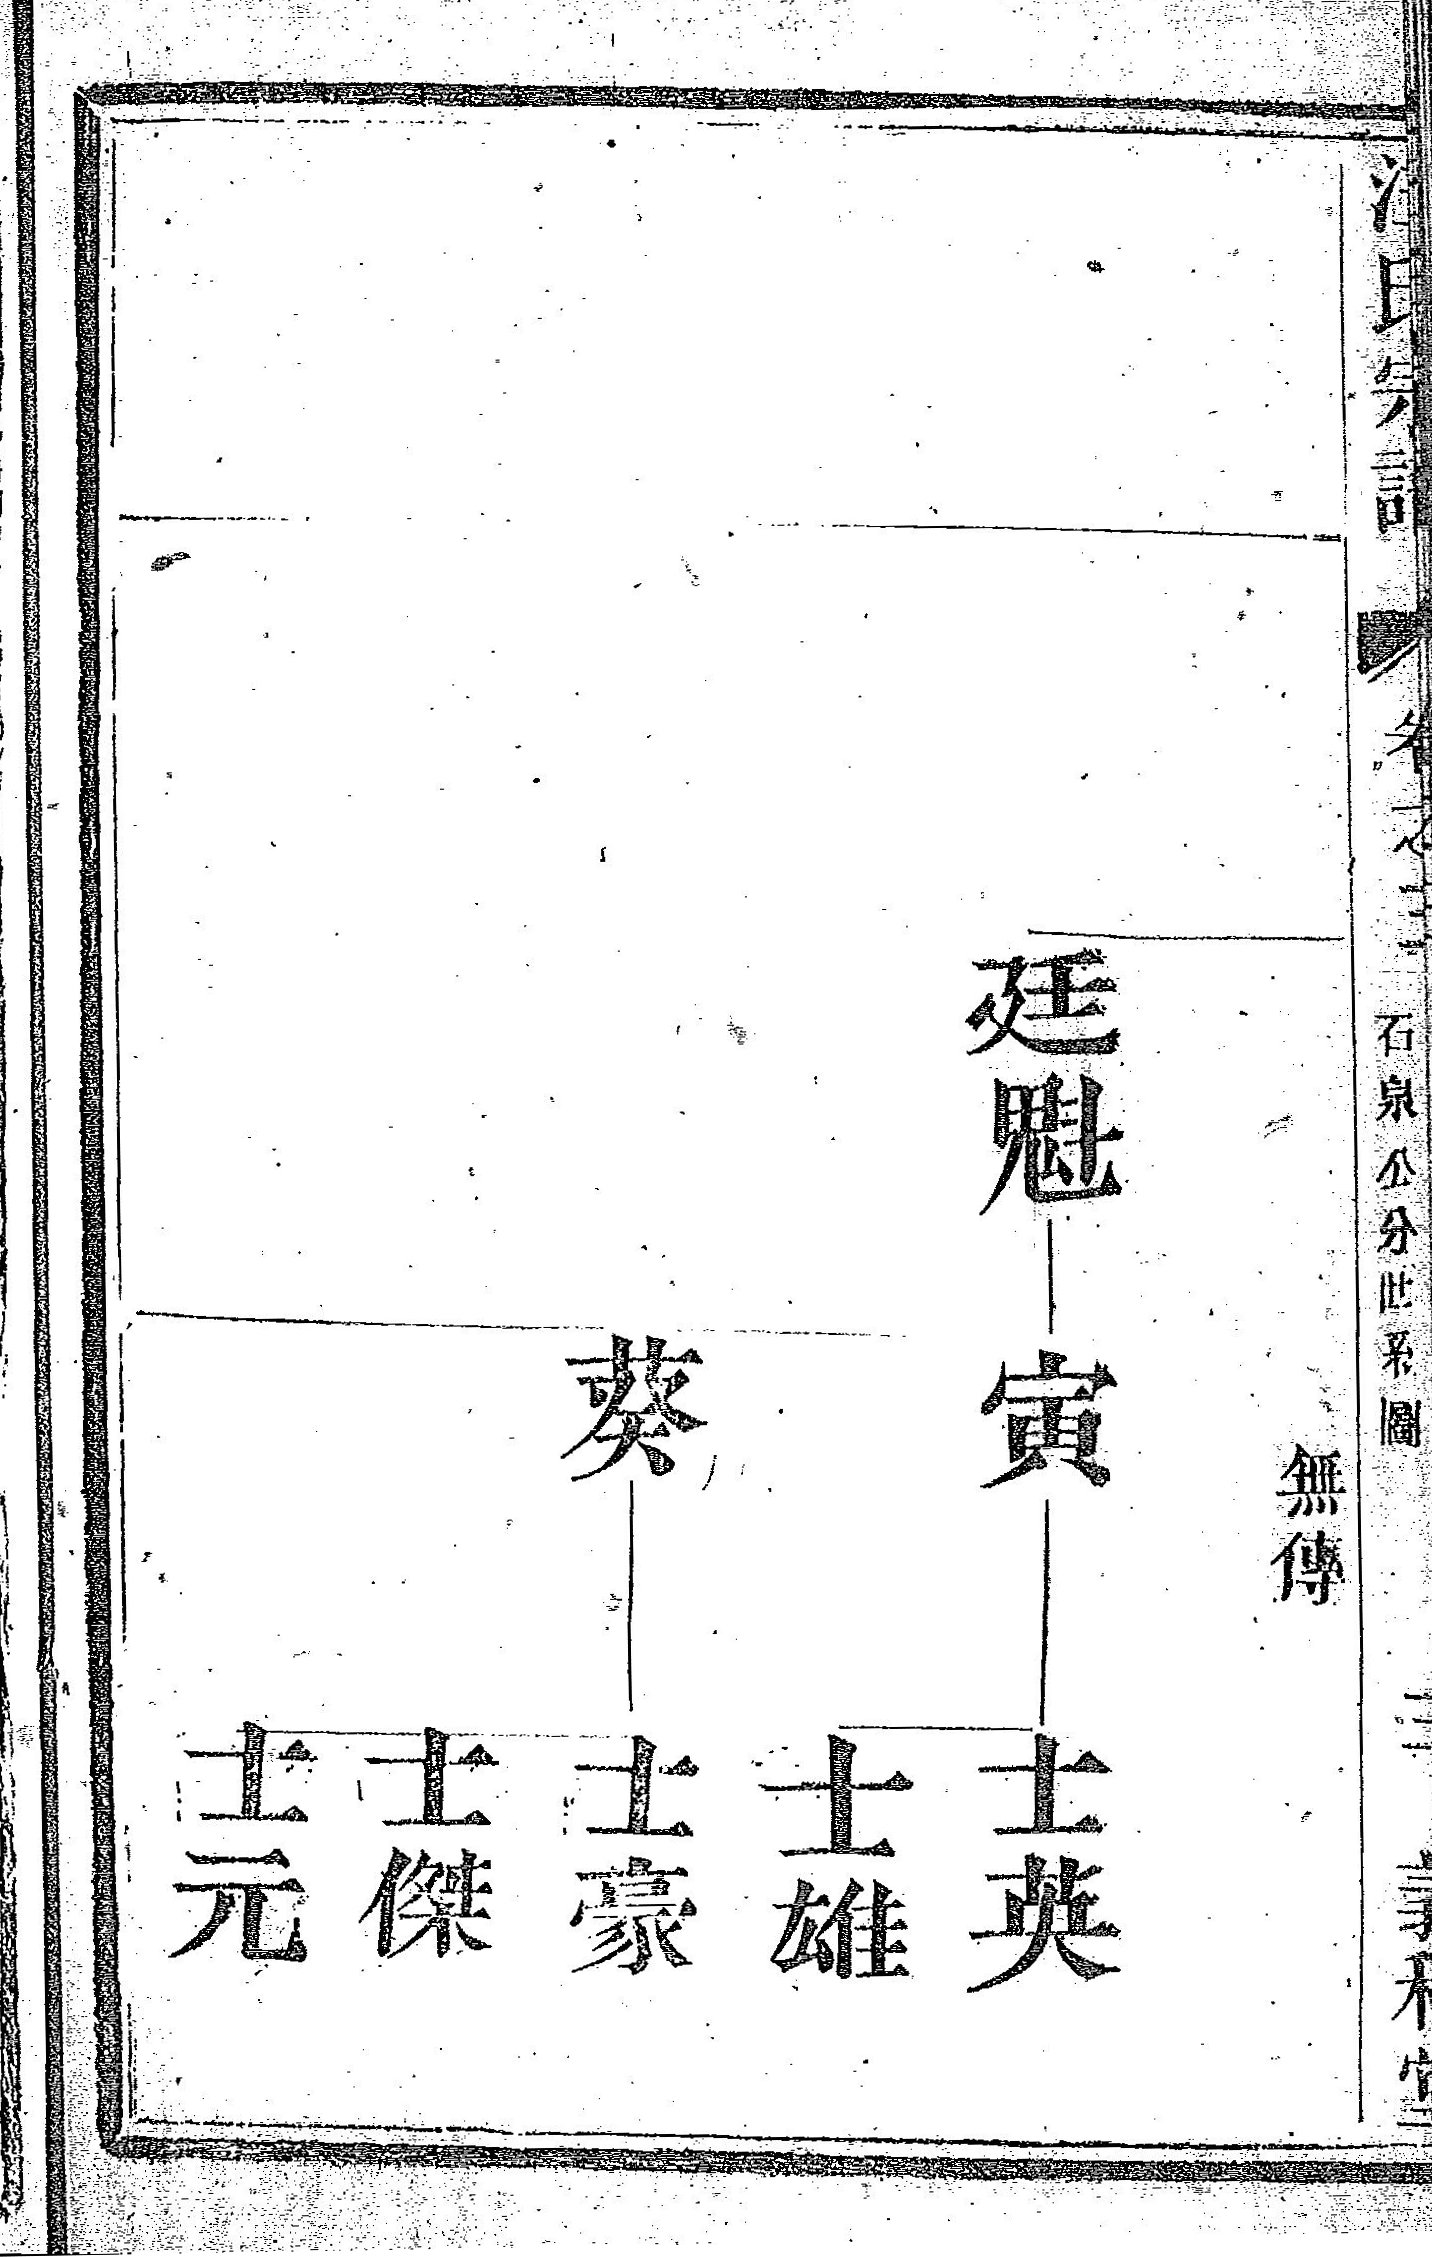 卷之三
石泉公分世系圖
無傳
廷魁
寅
士英
士雄
葵
士豪
士傑
士元